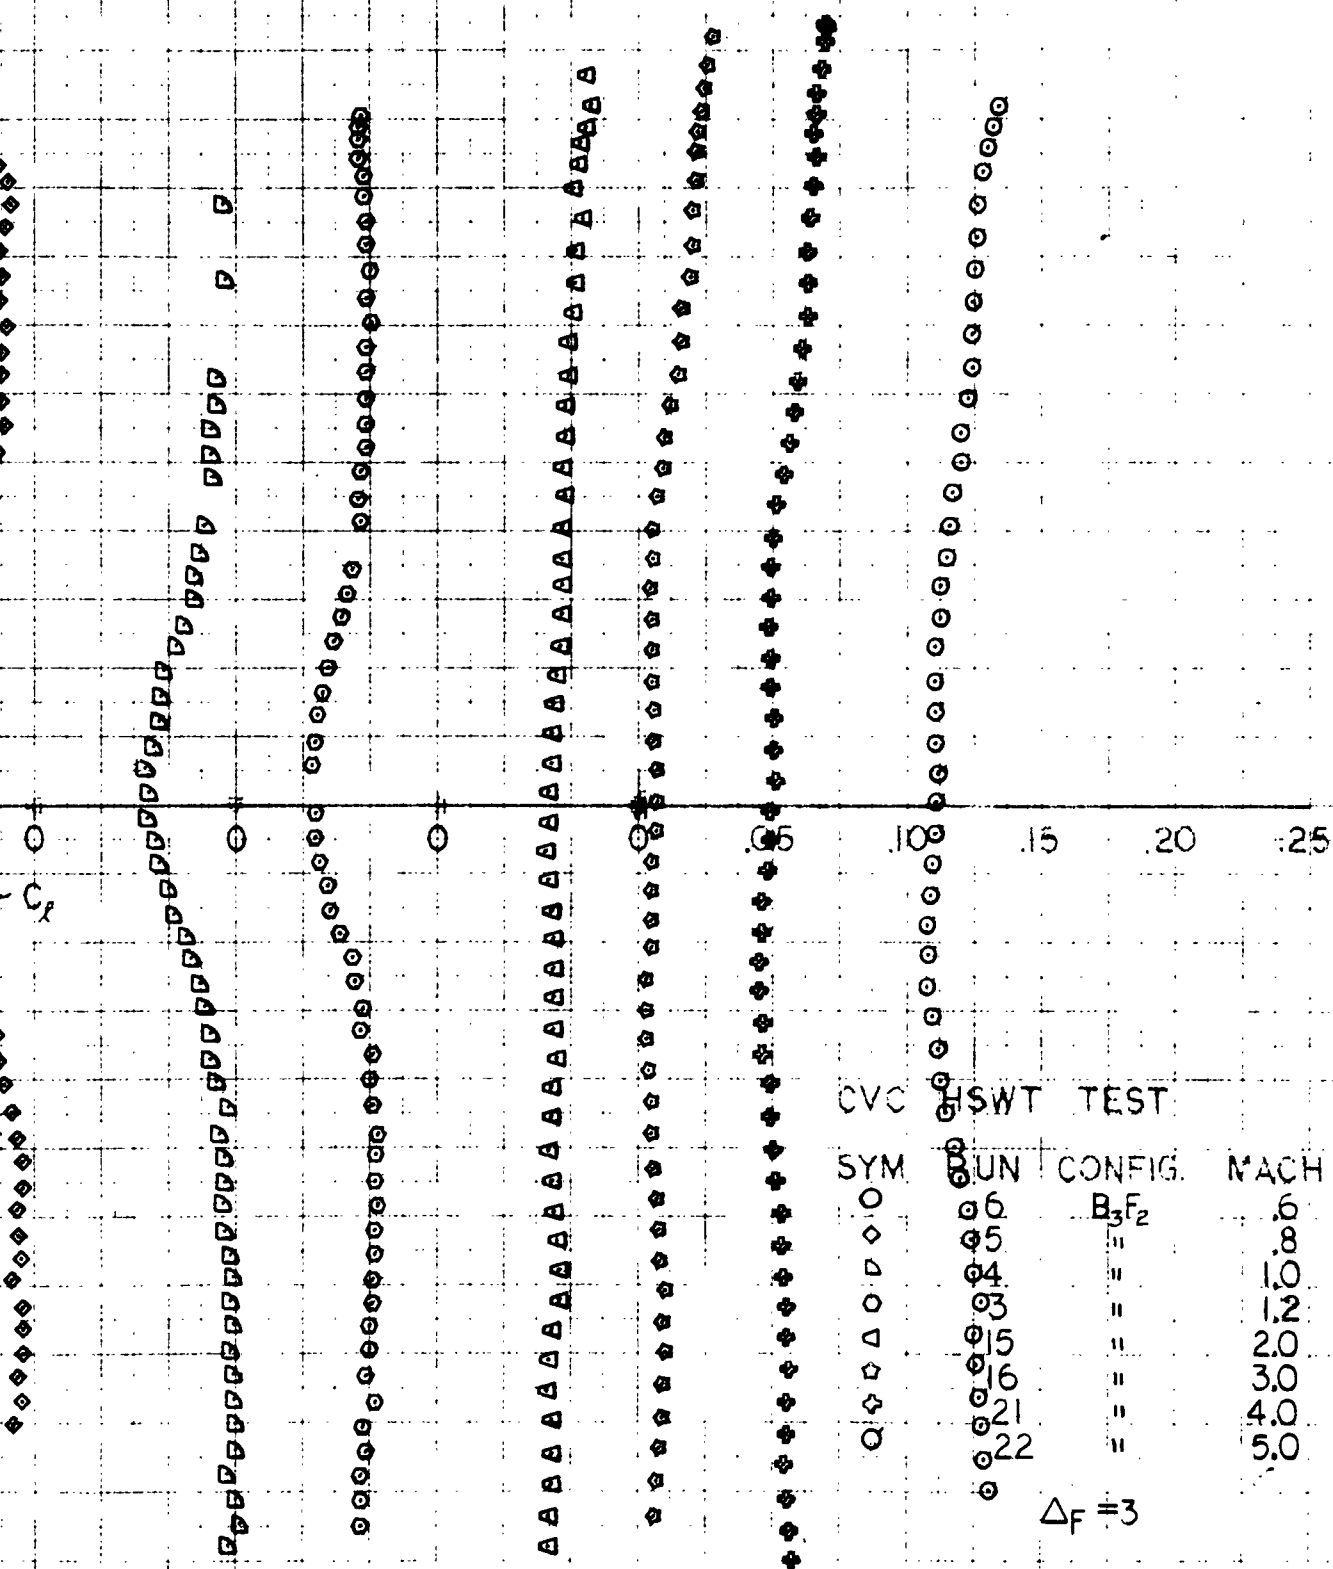 0 0 0 0 .05 .10 .15 .20 .25
~ Cℓ
CVC HSWT TEST
SYM RUN CONFIG. MACH
6 B₃F₂ .6
5 " .8
4 " 1.0
3 " 1.2
15 " 2.0
16 " 3.0
21 " 4.0
22 " 5.0
△F = 3